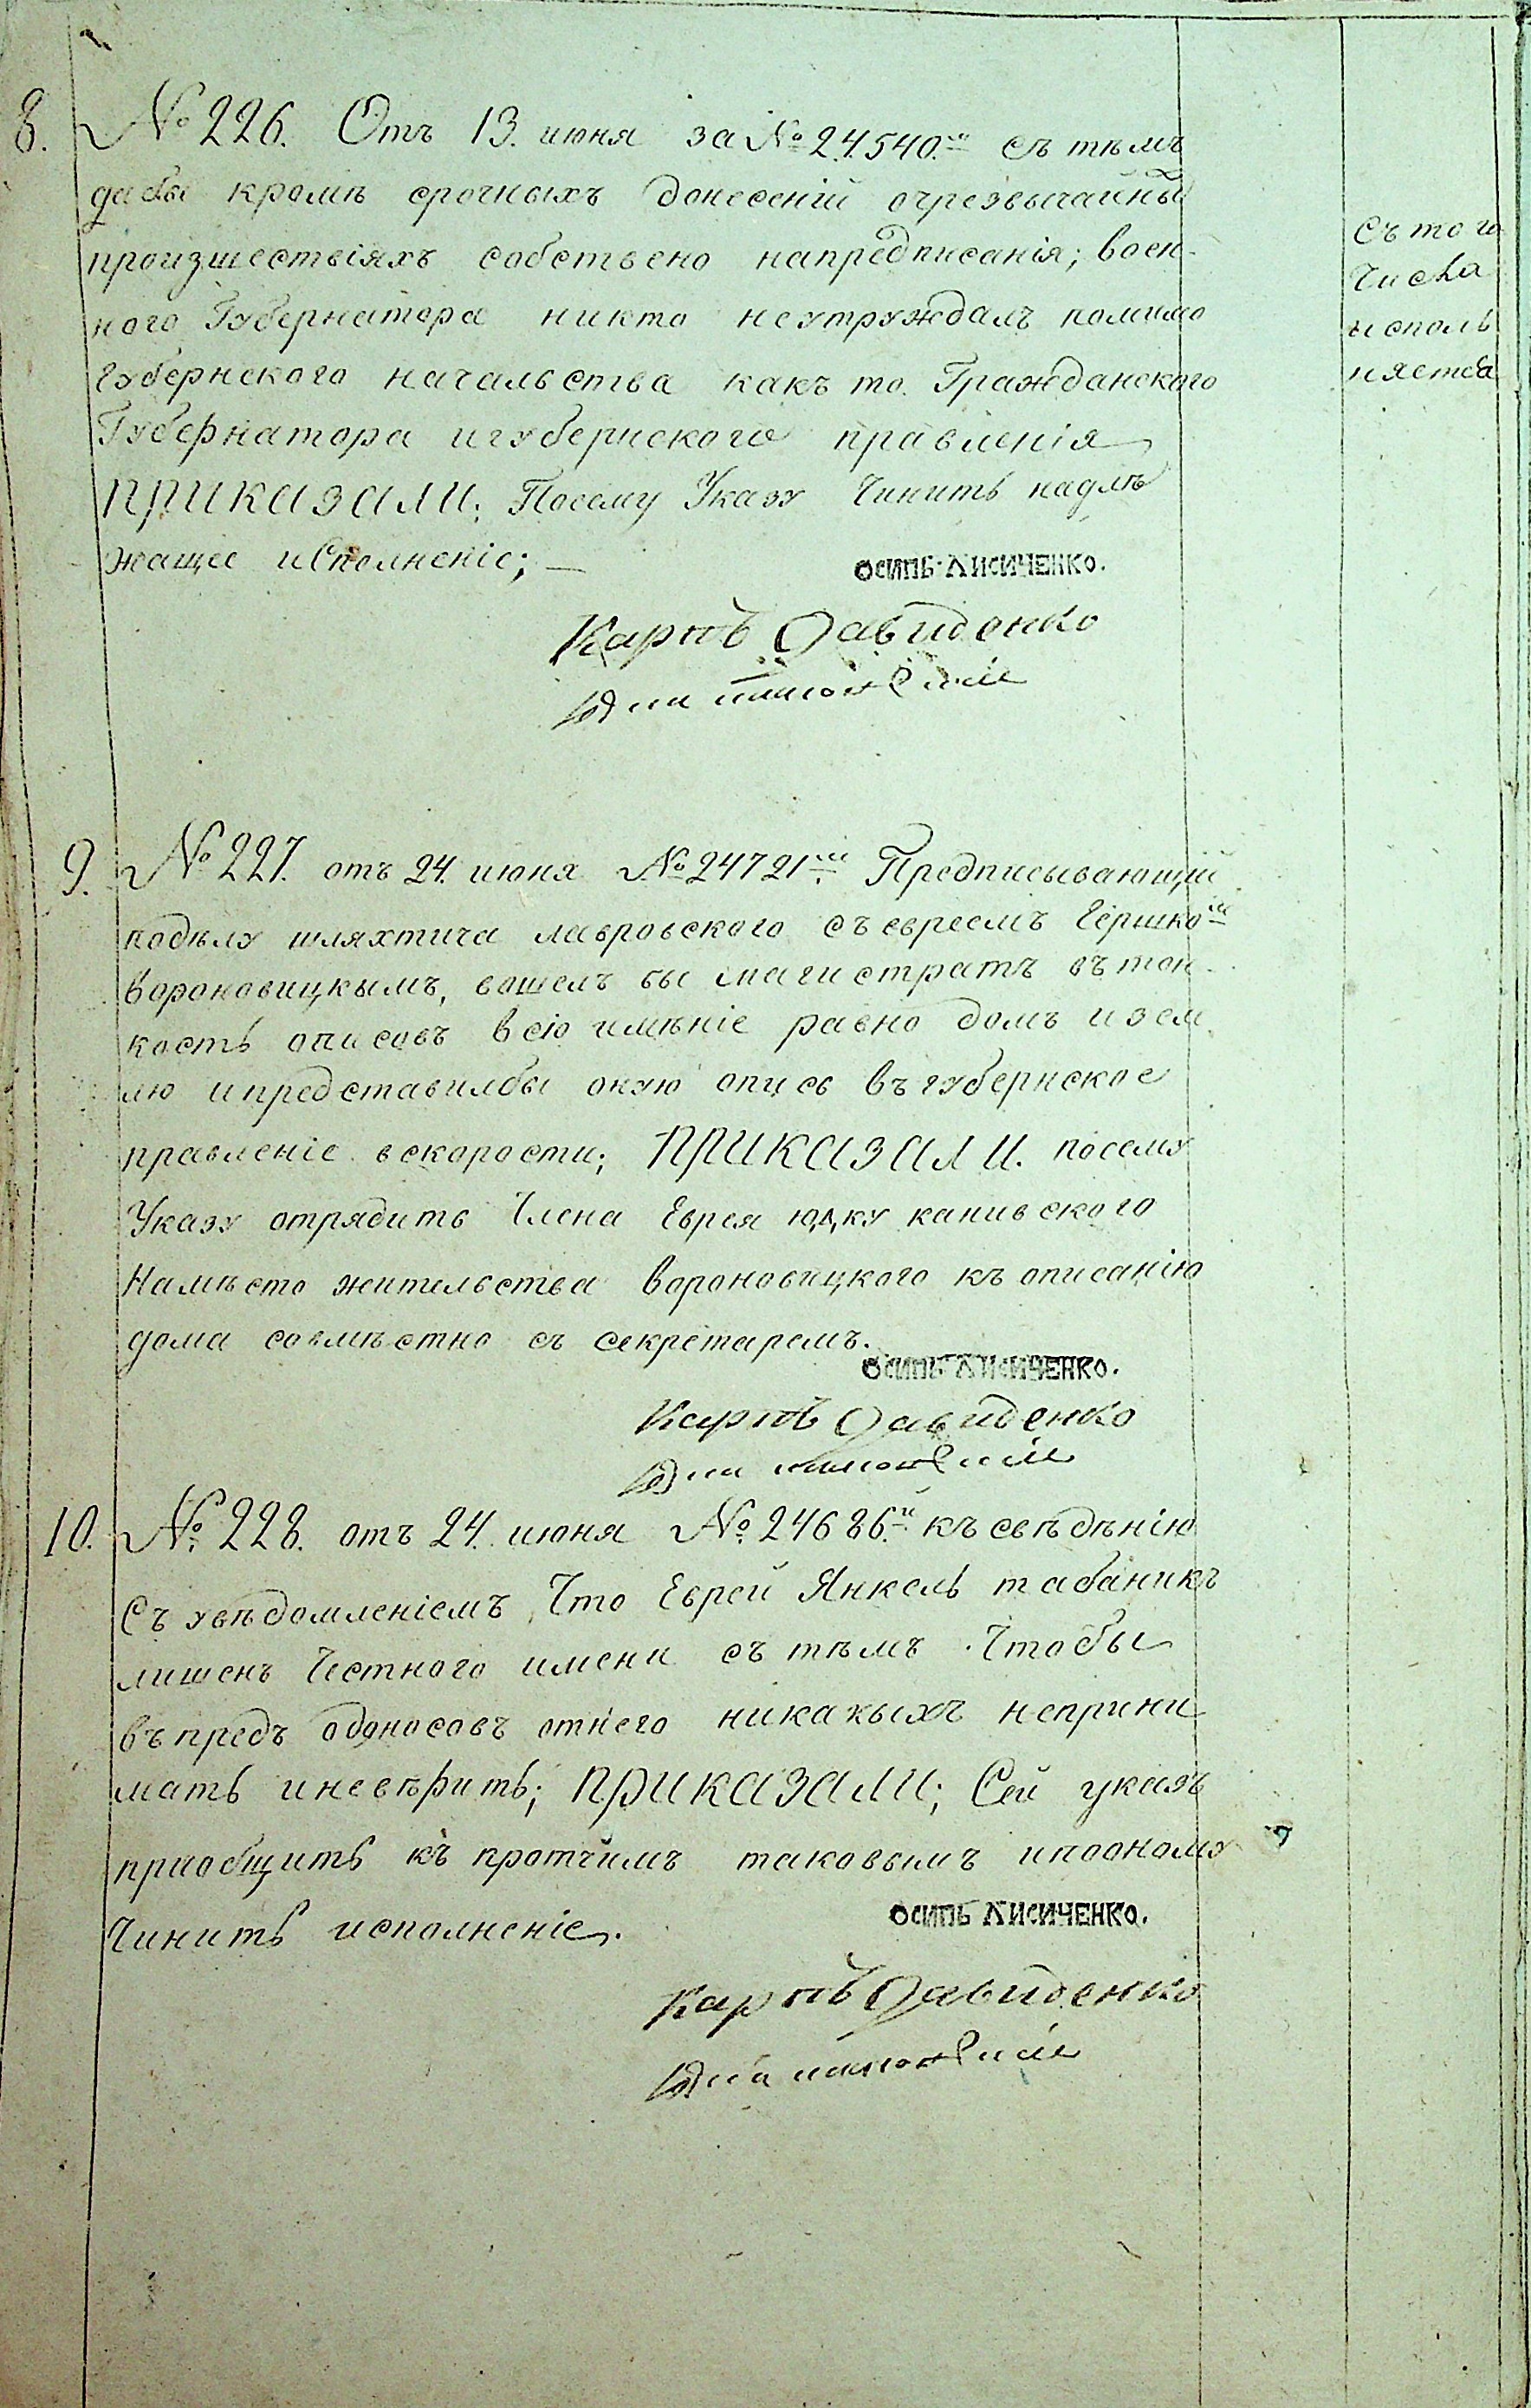 8. № 226. Отъ 13. июня за № 24540.м съ тѣмъ
дабы кромѣ срочныхъ донесеній очрезвычайны
произшествіяхъ собствено напредписанія; воен-
ного Губернатора никто неутруждалъ помимо
губернского начальства какъ то. Гражданского
Губернатора игубернского правленія
ПРИКАЗАЛИ; Посему Указу Чинить надлѣ
жащее исполненіе; —
съ того
Числа
исполь
няетса
ОСИПЬ ЛИСИЧЕНКО.
Карпъ Давиденко
9. № 227. отъ 24. июня № 24721м Предписывающій
подѣлу шляхтича лавровского съ евреемъ Гершкомъ
вороновицкымъ, вошелъ бы магистратъ въ тон-
кость описовъ всю имѣніе равно домъ изем
лю ипредставилбы оную опись въ губернское
правленіе вскорости; ПРИКАЗАЛИ. посему
Указу отрядить Члена Еврея юдку канивского
Намѣсто жительства вороновицкого къ описанію
дома совмѣстно съ секретаремъ.
ОСИПЬ ЛИСИЧЕНКО.
Карпъ Давиденко
10. № 228. отъ 24. июня № 24686.м къ свѣдѣнію
Съ увѣдомленіемъ Что Еврей Янкель табаникъ
лишенъ Честного имени съ тѣмъ Чтобы
въпредъ одоносовъ отнего никакыхъ неприни
мать иневѣрить; ПРИКАЗАЛИ; Сей указъ
приобщить къ протчимъ таковымъ ипооному
Чинить исполненіе.
ОСИПЬ ЛИСИЧЕНКО.
Карпъ Давиденко